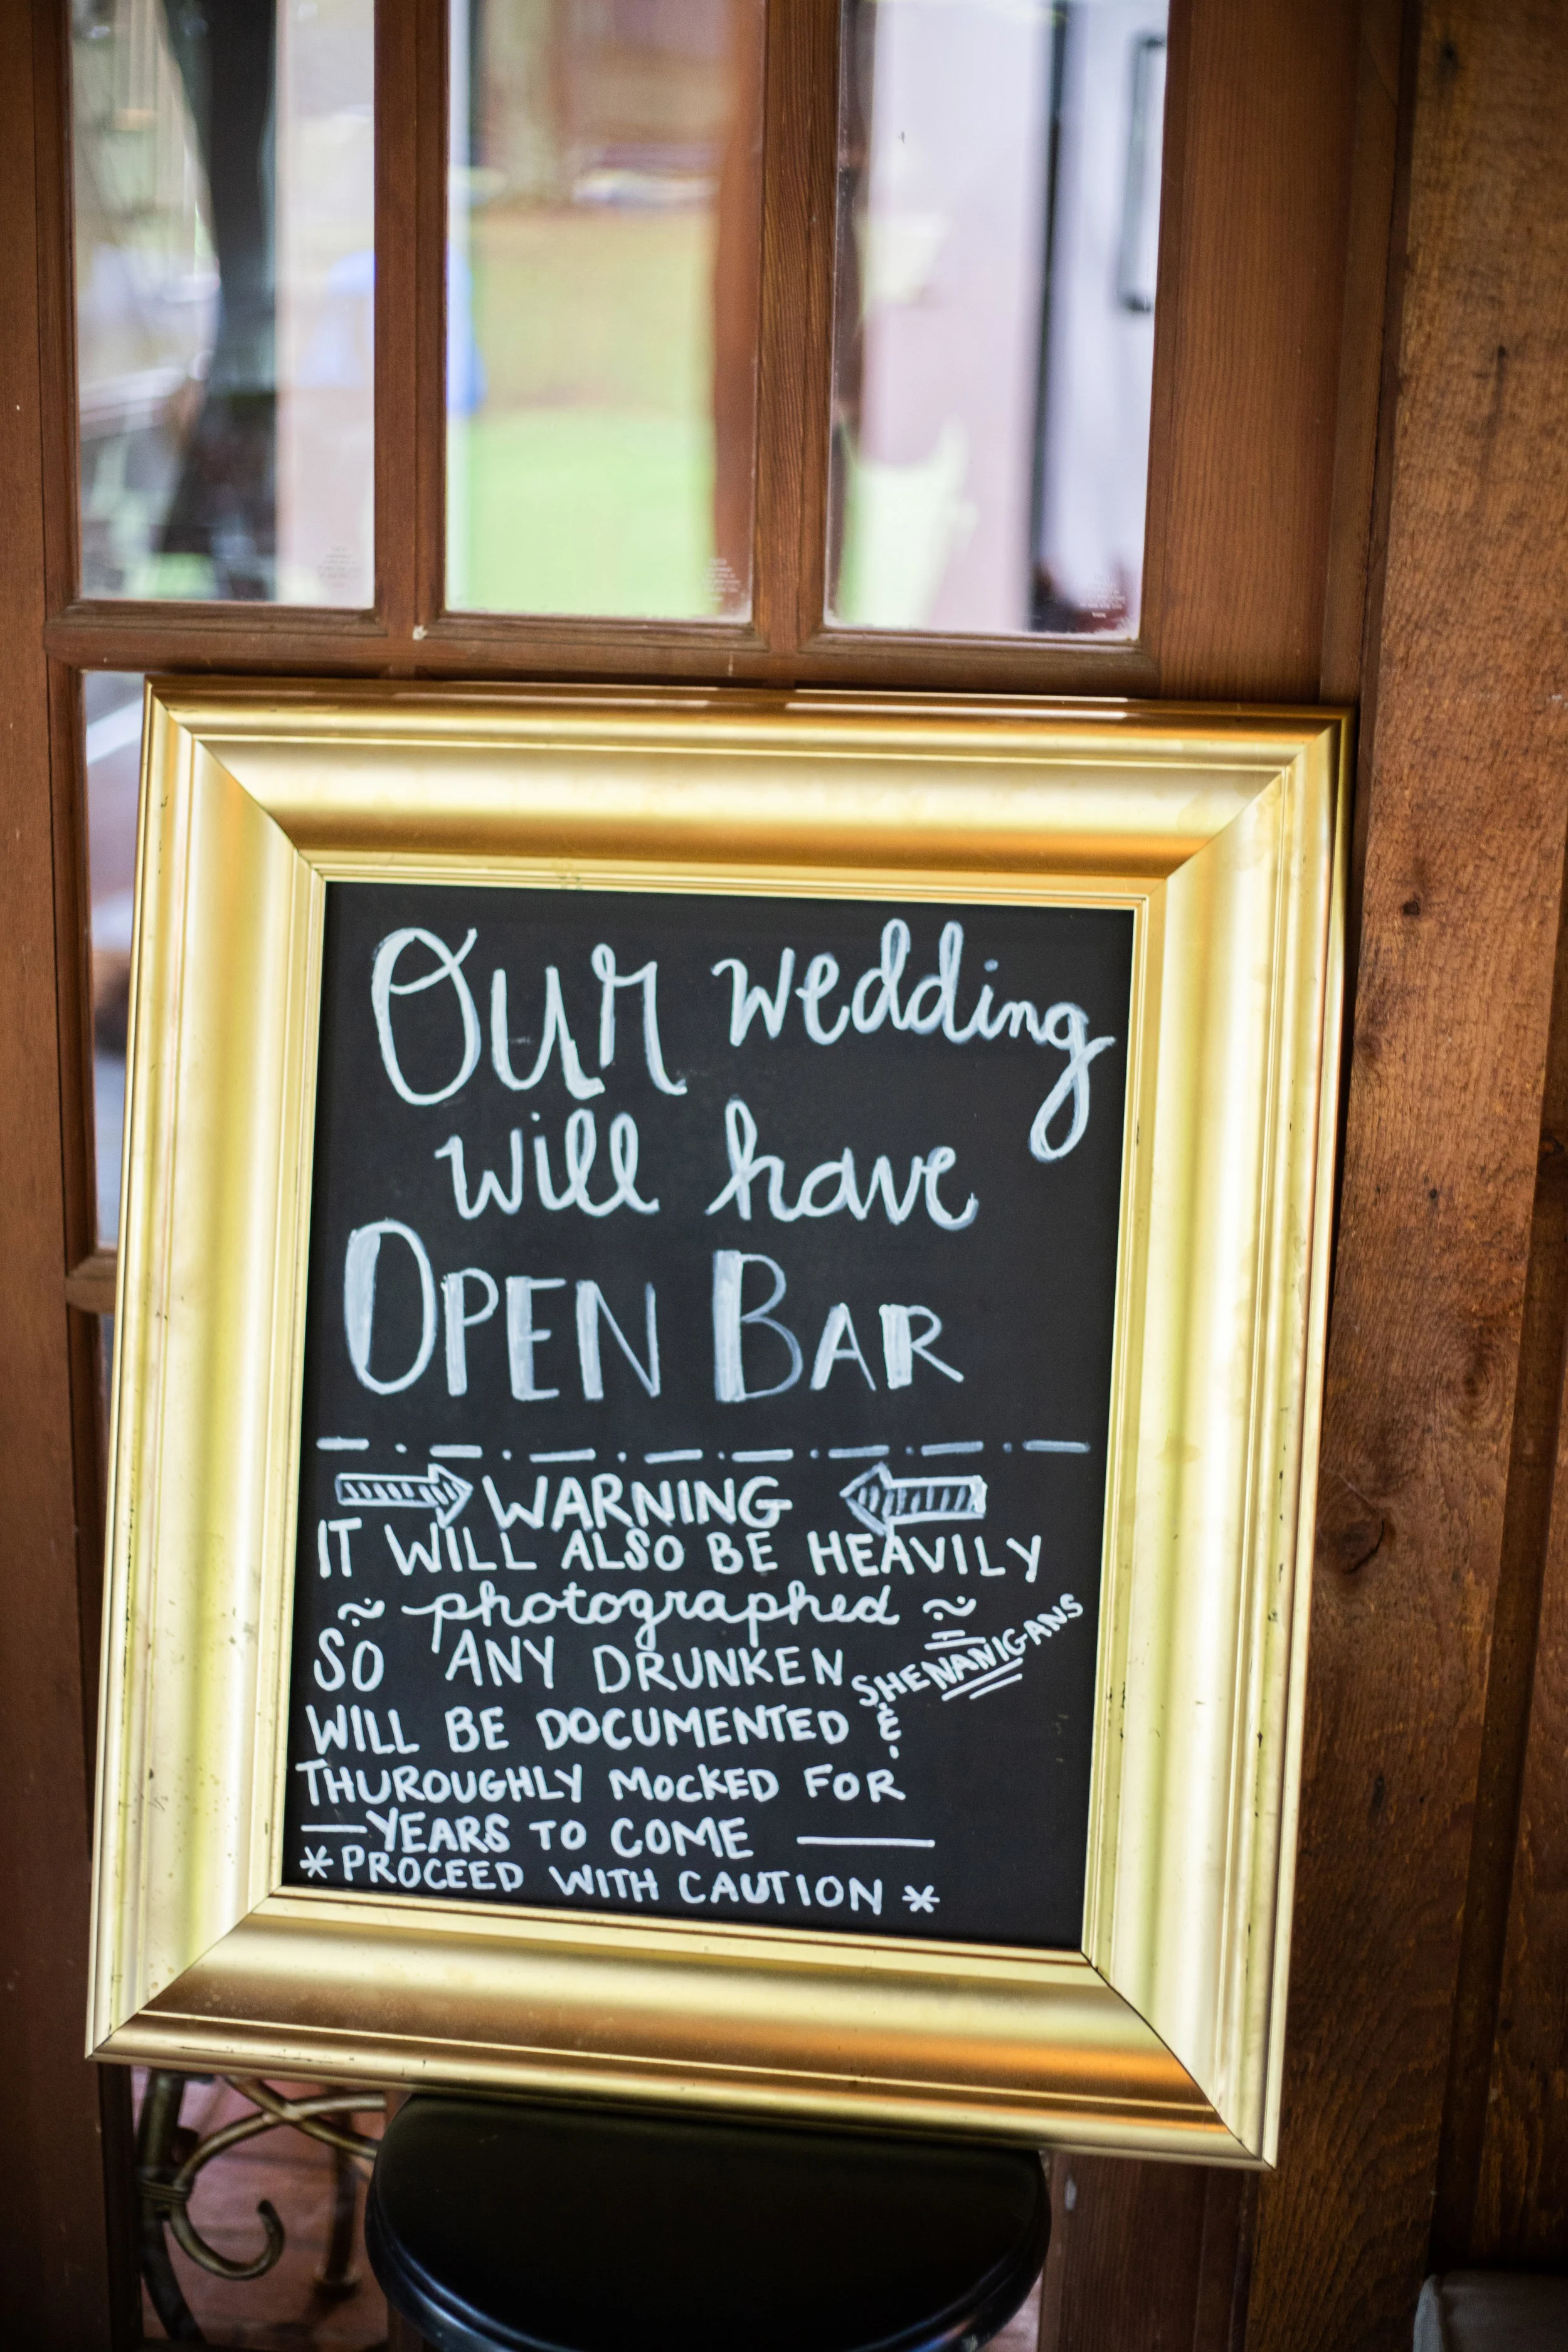 Our wedding
will have
OPEN BAR
WARNING
IT WILL ALSO BE HEAVILY
~ photographed ~
SO ANY DRUNKEN SHENANIGANS
WILL BE DOCUMENTED &
THUROUGHLY MOCKED FOR
— YEARS TO COME —
* PROCEED WITH CAUTION *